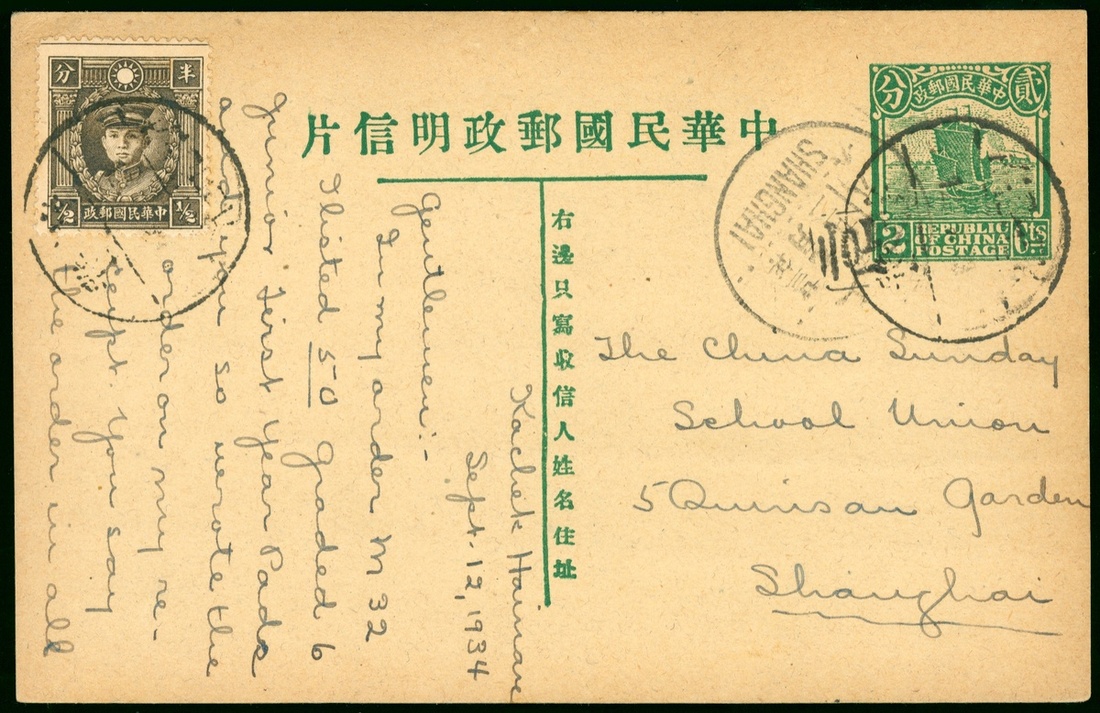 中華民國郵政明信片
半分
中華民國郵政
1/2 1/2
中華民國郵政
貳分
2 Cts
REPUBLIC
OF CHINA
POSTAGE
SHANGHAI
右邊只寫收信人姓名住址
The China Sunday
School Union
5 Quinsan Garden
Shanghai
Kachek Hainan
Sept. 12, 1934
Gentlemen:-
In my order M 32
I listed 50 Graded 6
Junior First Year Pads
and you so wrote the
order on my re-
cept. You say
the order in all